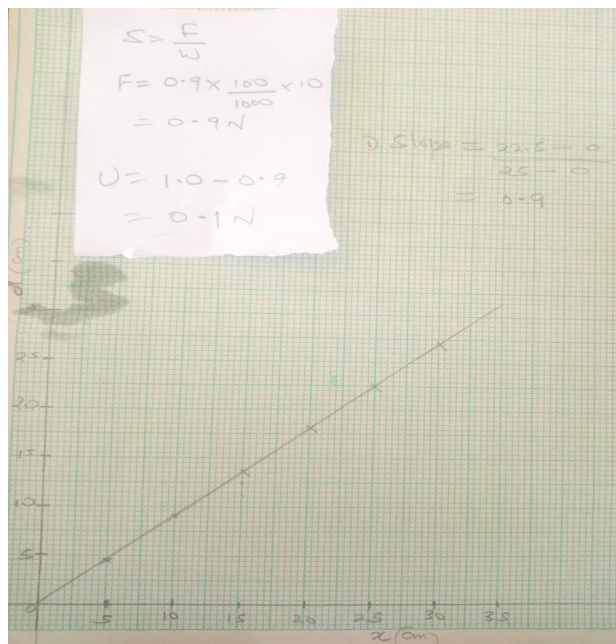 S = F/W
F = 0.9 × 100/1000 × 10
= 0.9N
U = 1.0 - 0.9
= 0.1N
1) Slope = 22.5 - 0 / 25 - 0
= 0.9
d (cm)
25
20
15
10
5
0
5 10 15 20 25 30 35
x (cm)